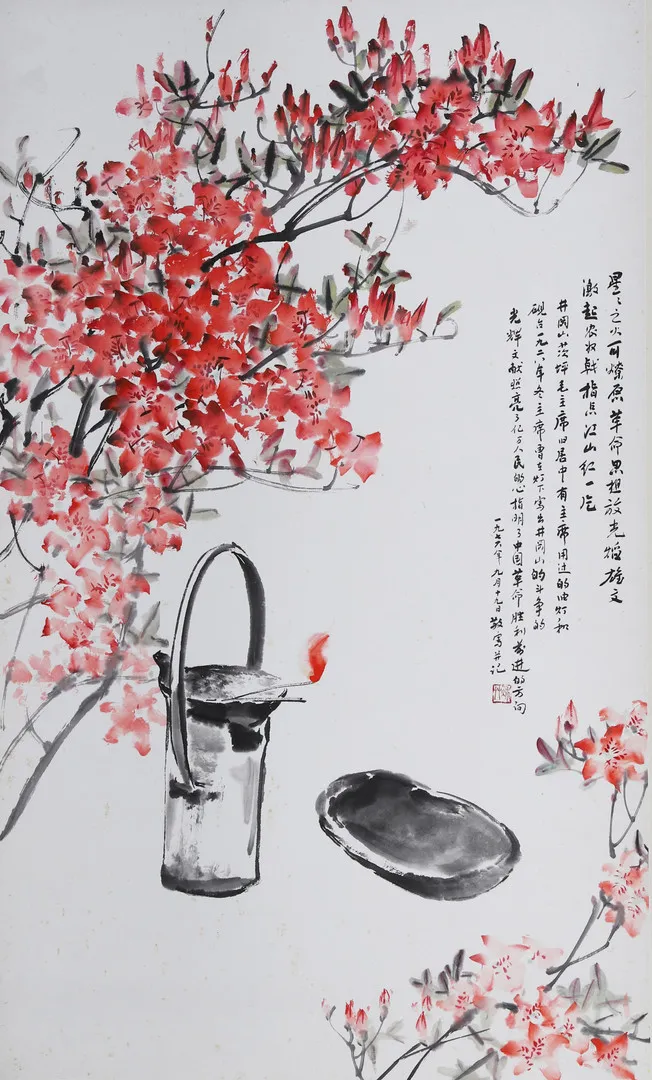 星々之火可燎原革命思想放光焰雄文
激起农奴戟指点江山红一片
井冈山茨坪毛主席旧居中有主席用过的油灯和
砚台一九二八年冬主席曾在灯下写出井冈山的斗争的
光辉文献照亮了亿万人民的心指明了中国革命胜利前进的方向
一九七六年九月十九日敬写并记